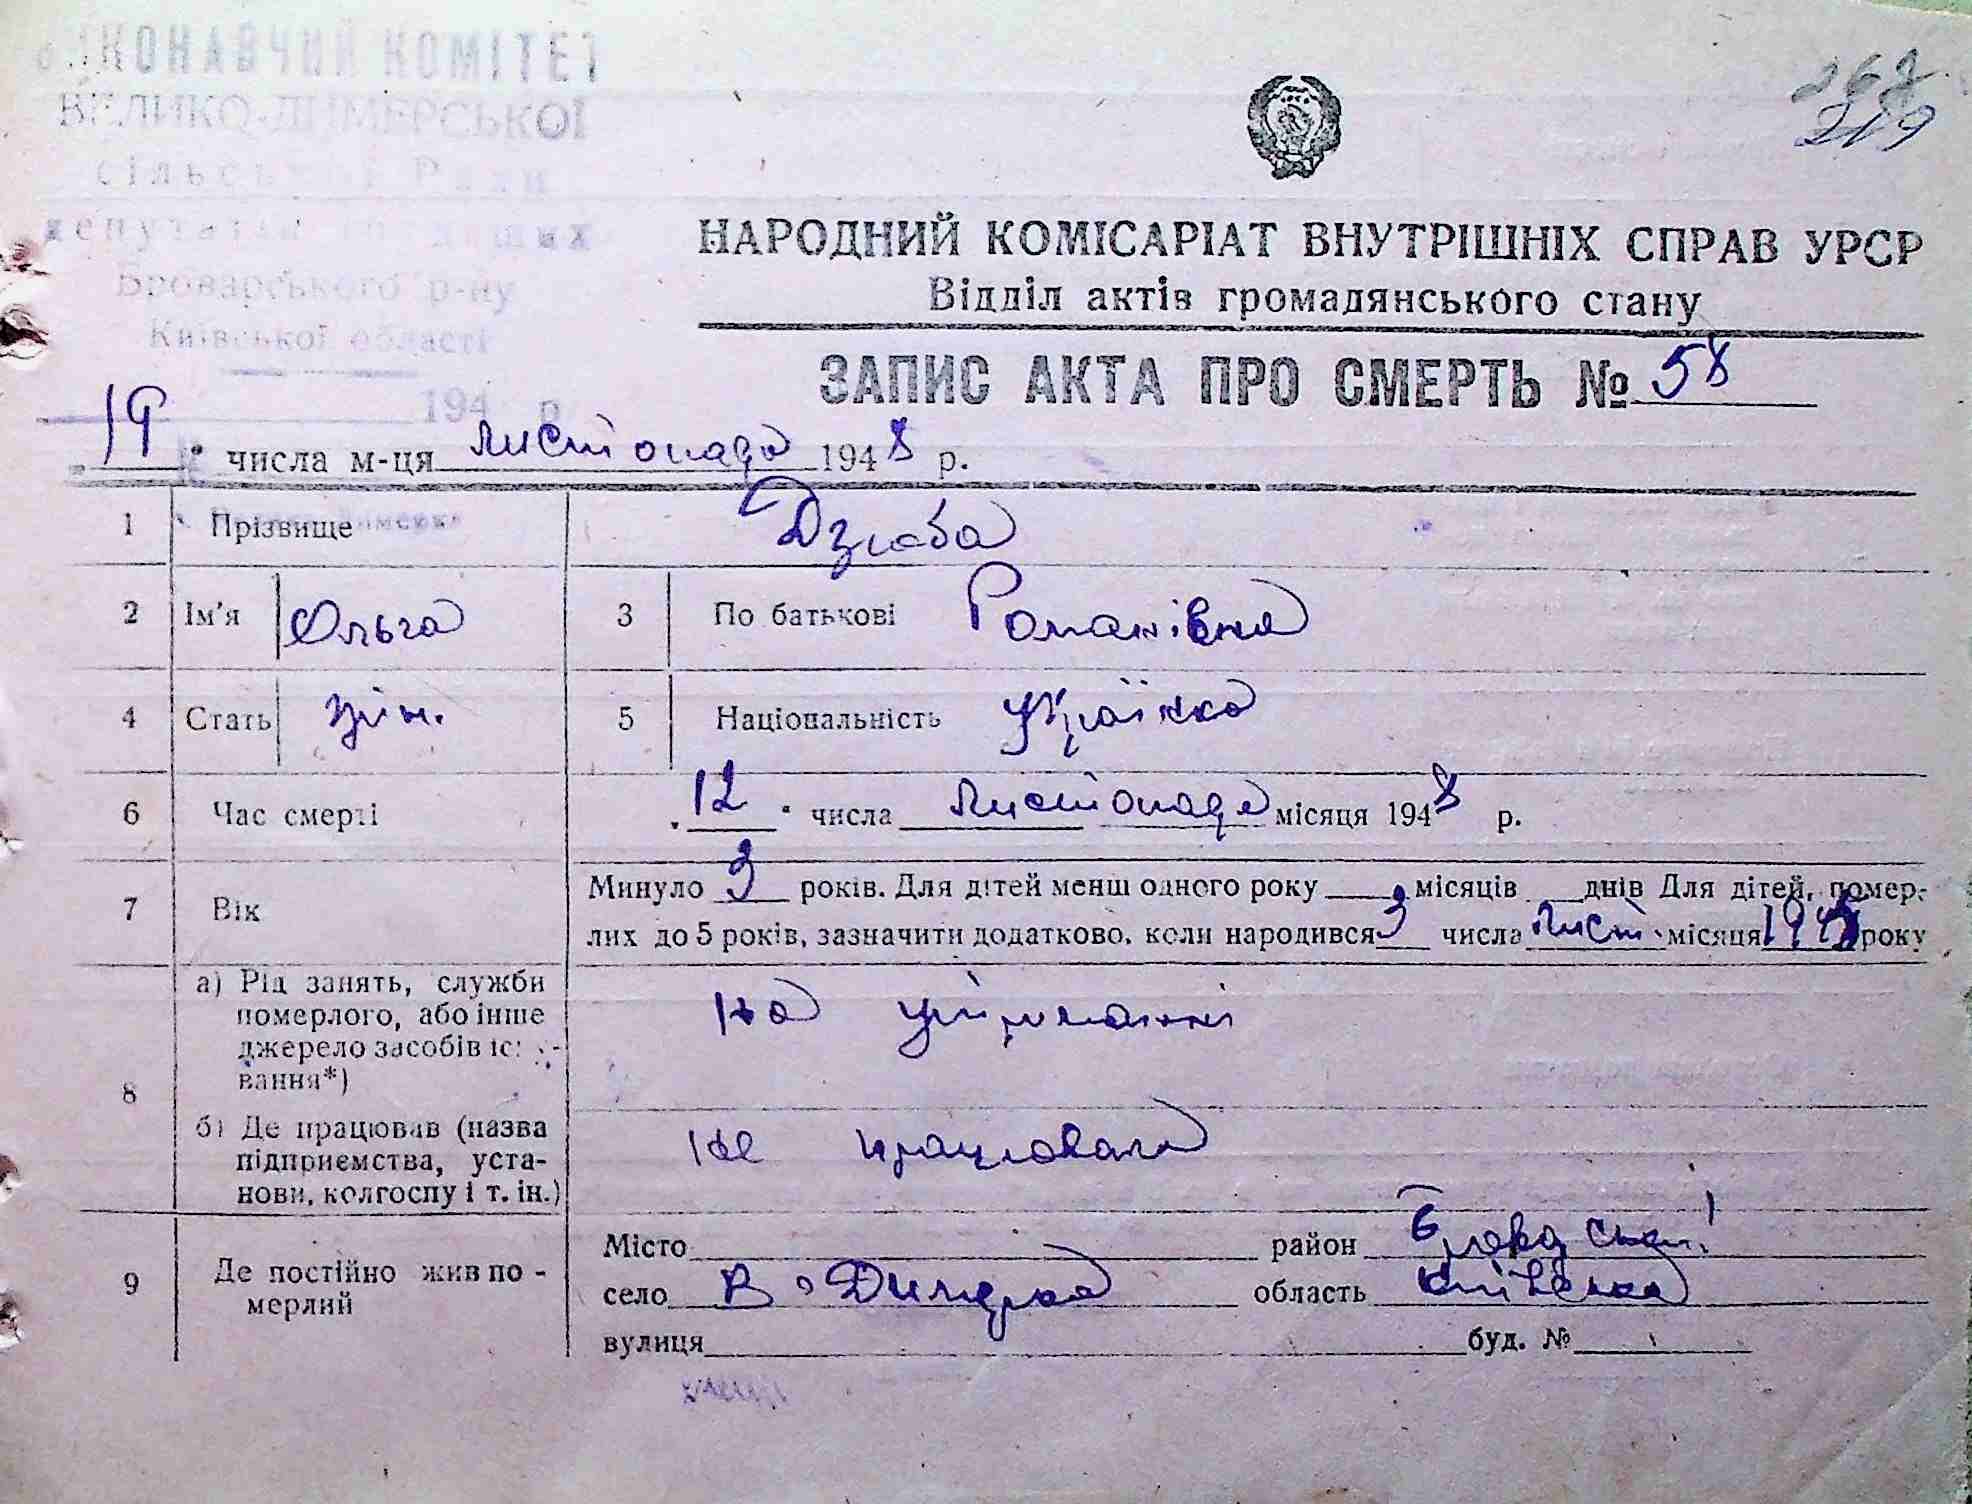 ВИКОНАВЧИЙ КОМІТЕТ
ВЕЛИКО-ДИМЕРСЬКОЇ
сільської Ради
депутатів трудящих
Броварського р-ну
Київської області
194 р
219
НАРОДНИЙ КОМІСАРІАТ ВНУТРІШНІХ СПРАВ УРСР
Відділ актів громадянського стану
ЗАПИС АКТА ПРО СМЕРТЬ № 58
19 числа м-ця листопада 1948 р.
1 Прізвище Дзюба
2 Ім'я Ольга 3 По батькові Романівна
4 Стать жін. 5 Національність Українка
6 Час смерті 12 числа листопада місяця 1948 р.
7 Вік Минуло 3 років. Для дітей менш одного року місяців днів Для дітей, помер-
лих до 5 років, зазначити додатково, коли народився 3 числа лист. місяця 1945 року
8 а) Рід занять, служби
померлого, або інше
джерело засобів існу-
вання*) на утриманні
б) Де працював (назва
підприємства, уста-
нови, колгоспу і т. ін.) не працювала
9 Де постійно жив по-
мерлий
Місто район Бровар ськи
село В. Димерка область Київська
вулиця буд. №